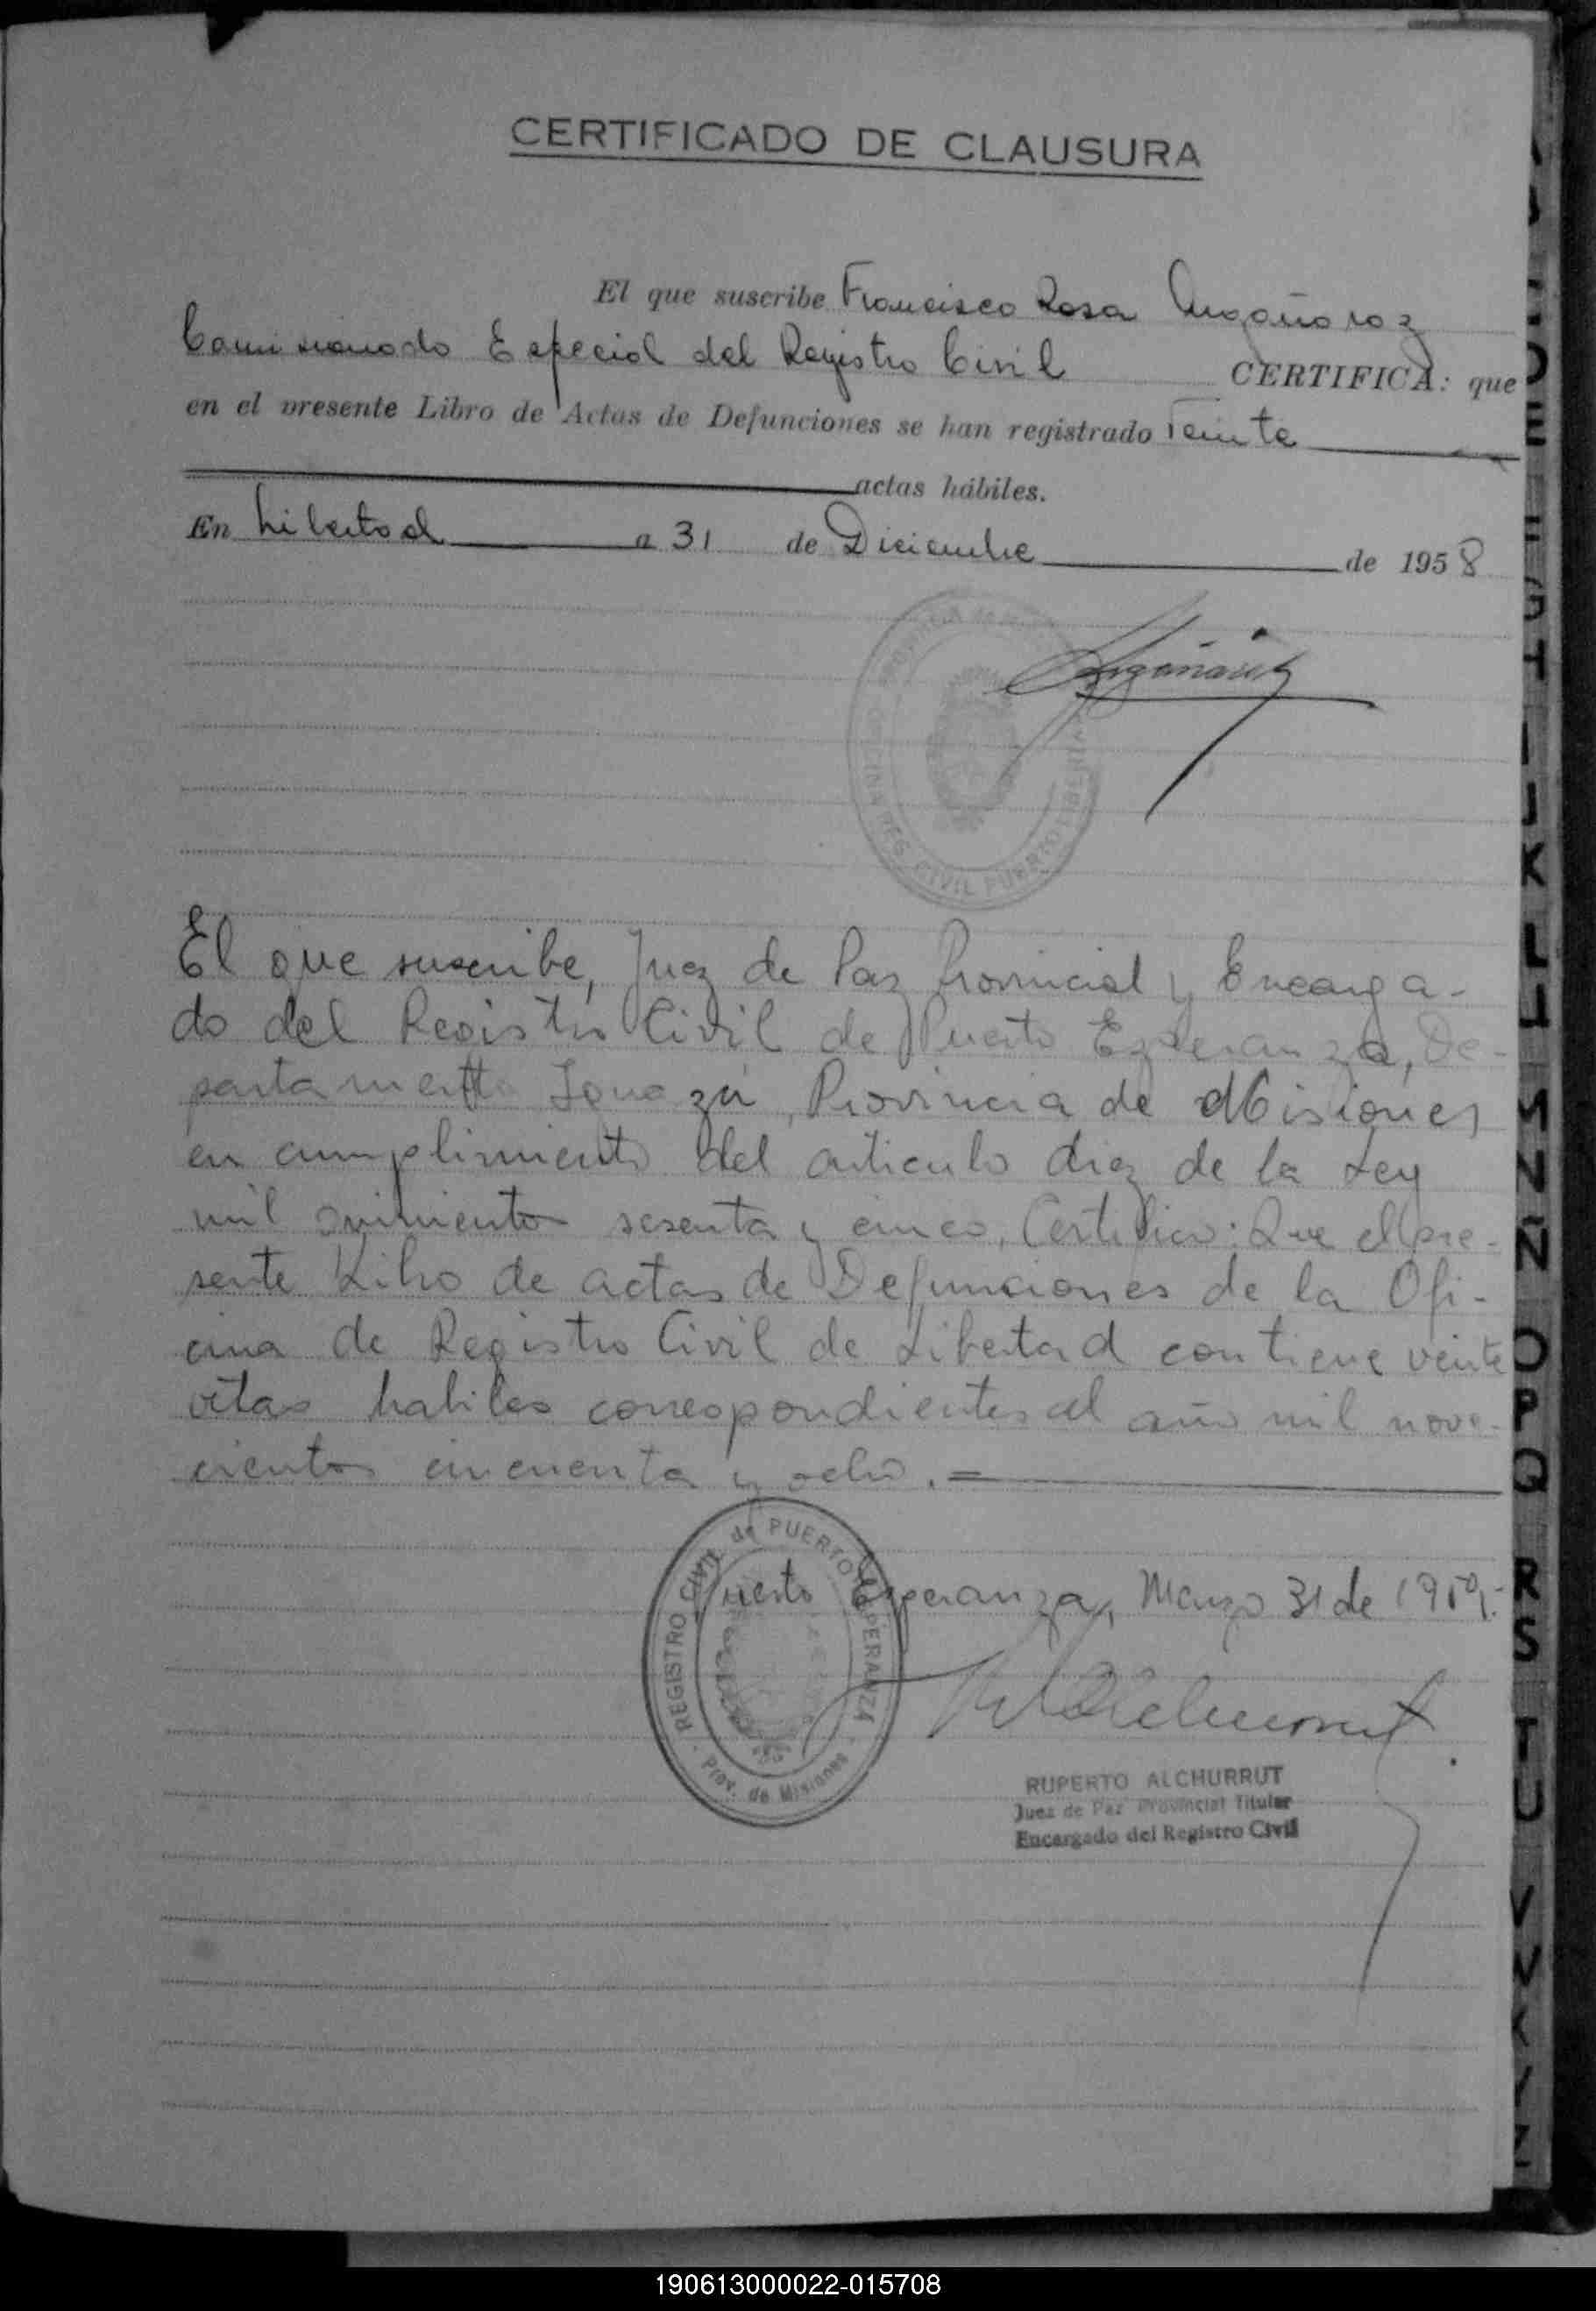 CERTIFICADO DE CLAUSURA
El que suscribe Francisco Rosa
Comisionado Especial del Registro Civil CERTIFICA: que
en el presente Libro de Actas de Defunciones se han registrado Veinte
actas hábiles.
En Libertad a 31 de Diciembre de 1958
OFICINA REG. CIVIL PUERTO LIBERTAD
El que suscribe, Juez de Paz Provincial y Encarga-
do del Registro Civil de Puerto Esperanza, De-
partamento Iguazú, Provincia de Misiones
en cumplimiento del articulo diez de la Ley
mil quinientos sesenta y cinco, Certifico: Que el pre-
sente Libro de actas de Defunciones de la Ofi-
cina de Registro Civil de Libertad contiene veinte
actas habiles correspondientes al año mil nove-
cientos cincuenta y ocho.=
REGISTRO CIVIL de PUERTO ESPERANZA
Prov. de Misiones
Puerto Esperanza, Marzo 31 de 1959.-
RUPERTO ALCHURRUT
Juez de Paz Provincial Titular
Encargado del Registro Civil
E
G
I
J
K
L
LL
M
N
Ñ
O
P
Q
R
S
T
U
V
W
X
Y
Z
190613000022-015708